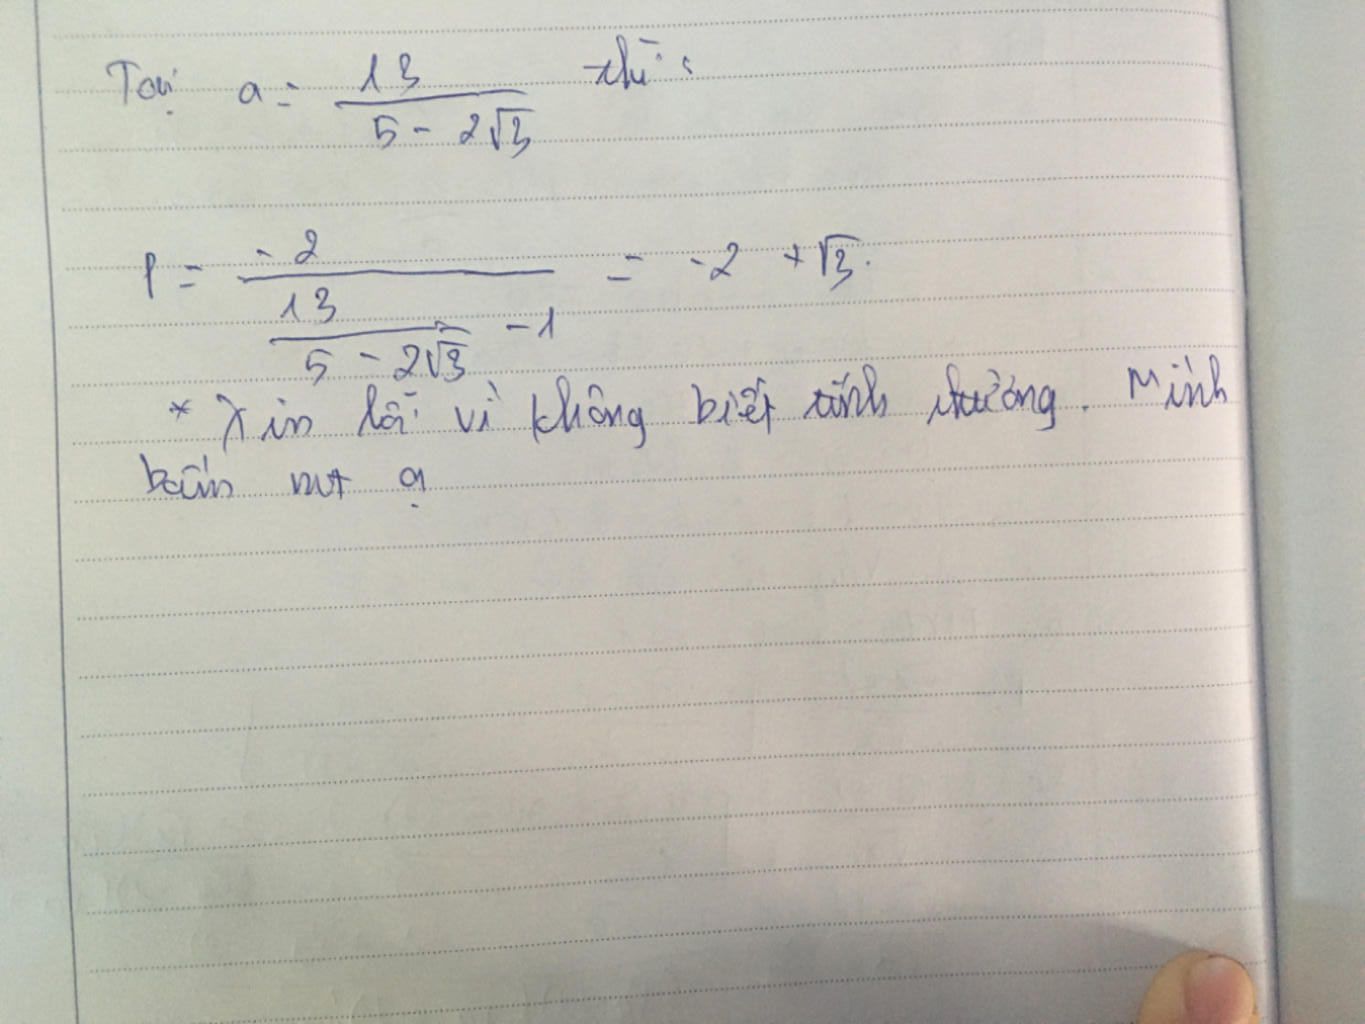 Tại a = 13 / (5 - 2√3) thì :
P = -2 / (13 / (5 - 2√3) - 1) = -2 + √3.
* Xin lỗi vì không biết tính thường. Mình
bấm mt ạ